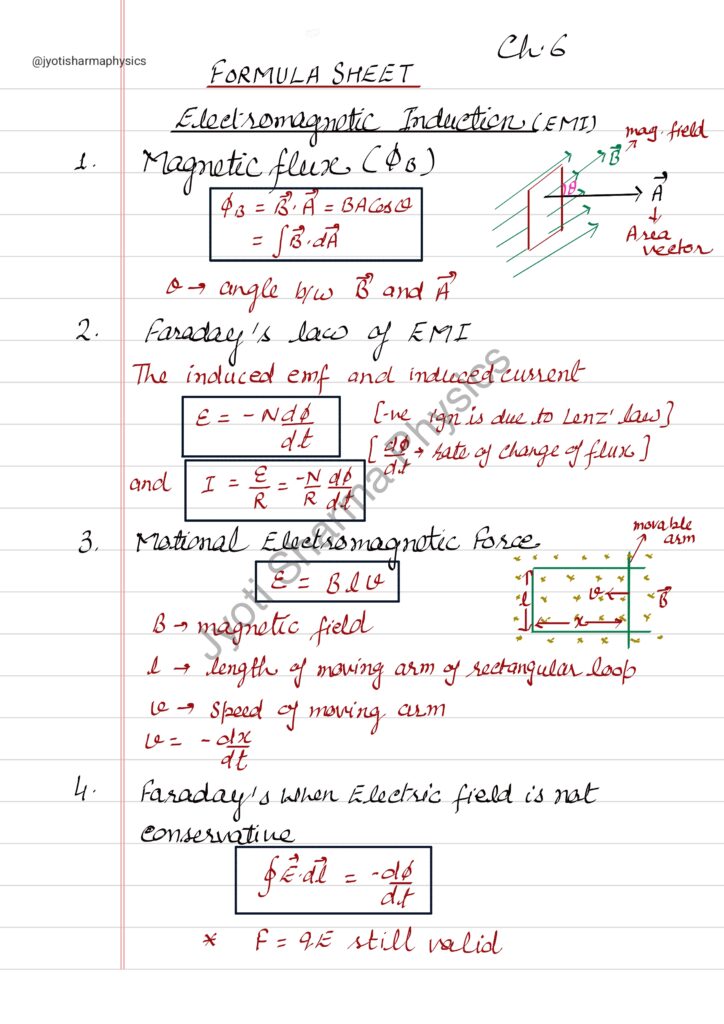 Ch. 6
@jyotisharmaphysics
FORMULA SHEET
Electromagnetic Induction (EMI)
1. Magnetic flux (ϕB)
ϕB = B⃗.A⃗ = BACosθ
= ∫B⃗.dA⃗
θ → angle b/w B⃗ and A⃗
mag. field
B⃗
θ
A⃗
Area
vector
2. Faraday's law of EMI
The induced emf and induced current
ε = -Ndϕ/dt
[-ve ign is due to Lenz' law]
[dϕ/dt → rate of change of flux]
and I = ε/R = -N/R dϕ/dt
3. Motional Electromagnetic Force
ε = Blv
movable
arm
l
v
x
B⃗
B → magnetic field
l → length of moving arm of rectangular loop
v → speed of moving arm
v = -dx/dt
4. Faraday's when Electric field is not
conservative
∮E⃗.dl⃗ = -dϕ/dt
* F = qE still valid
Jyoti Sharma Physics